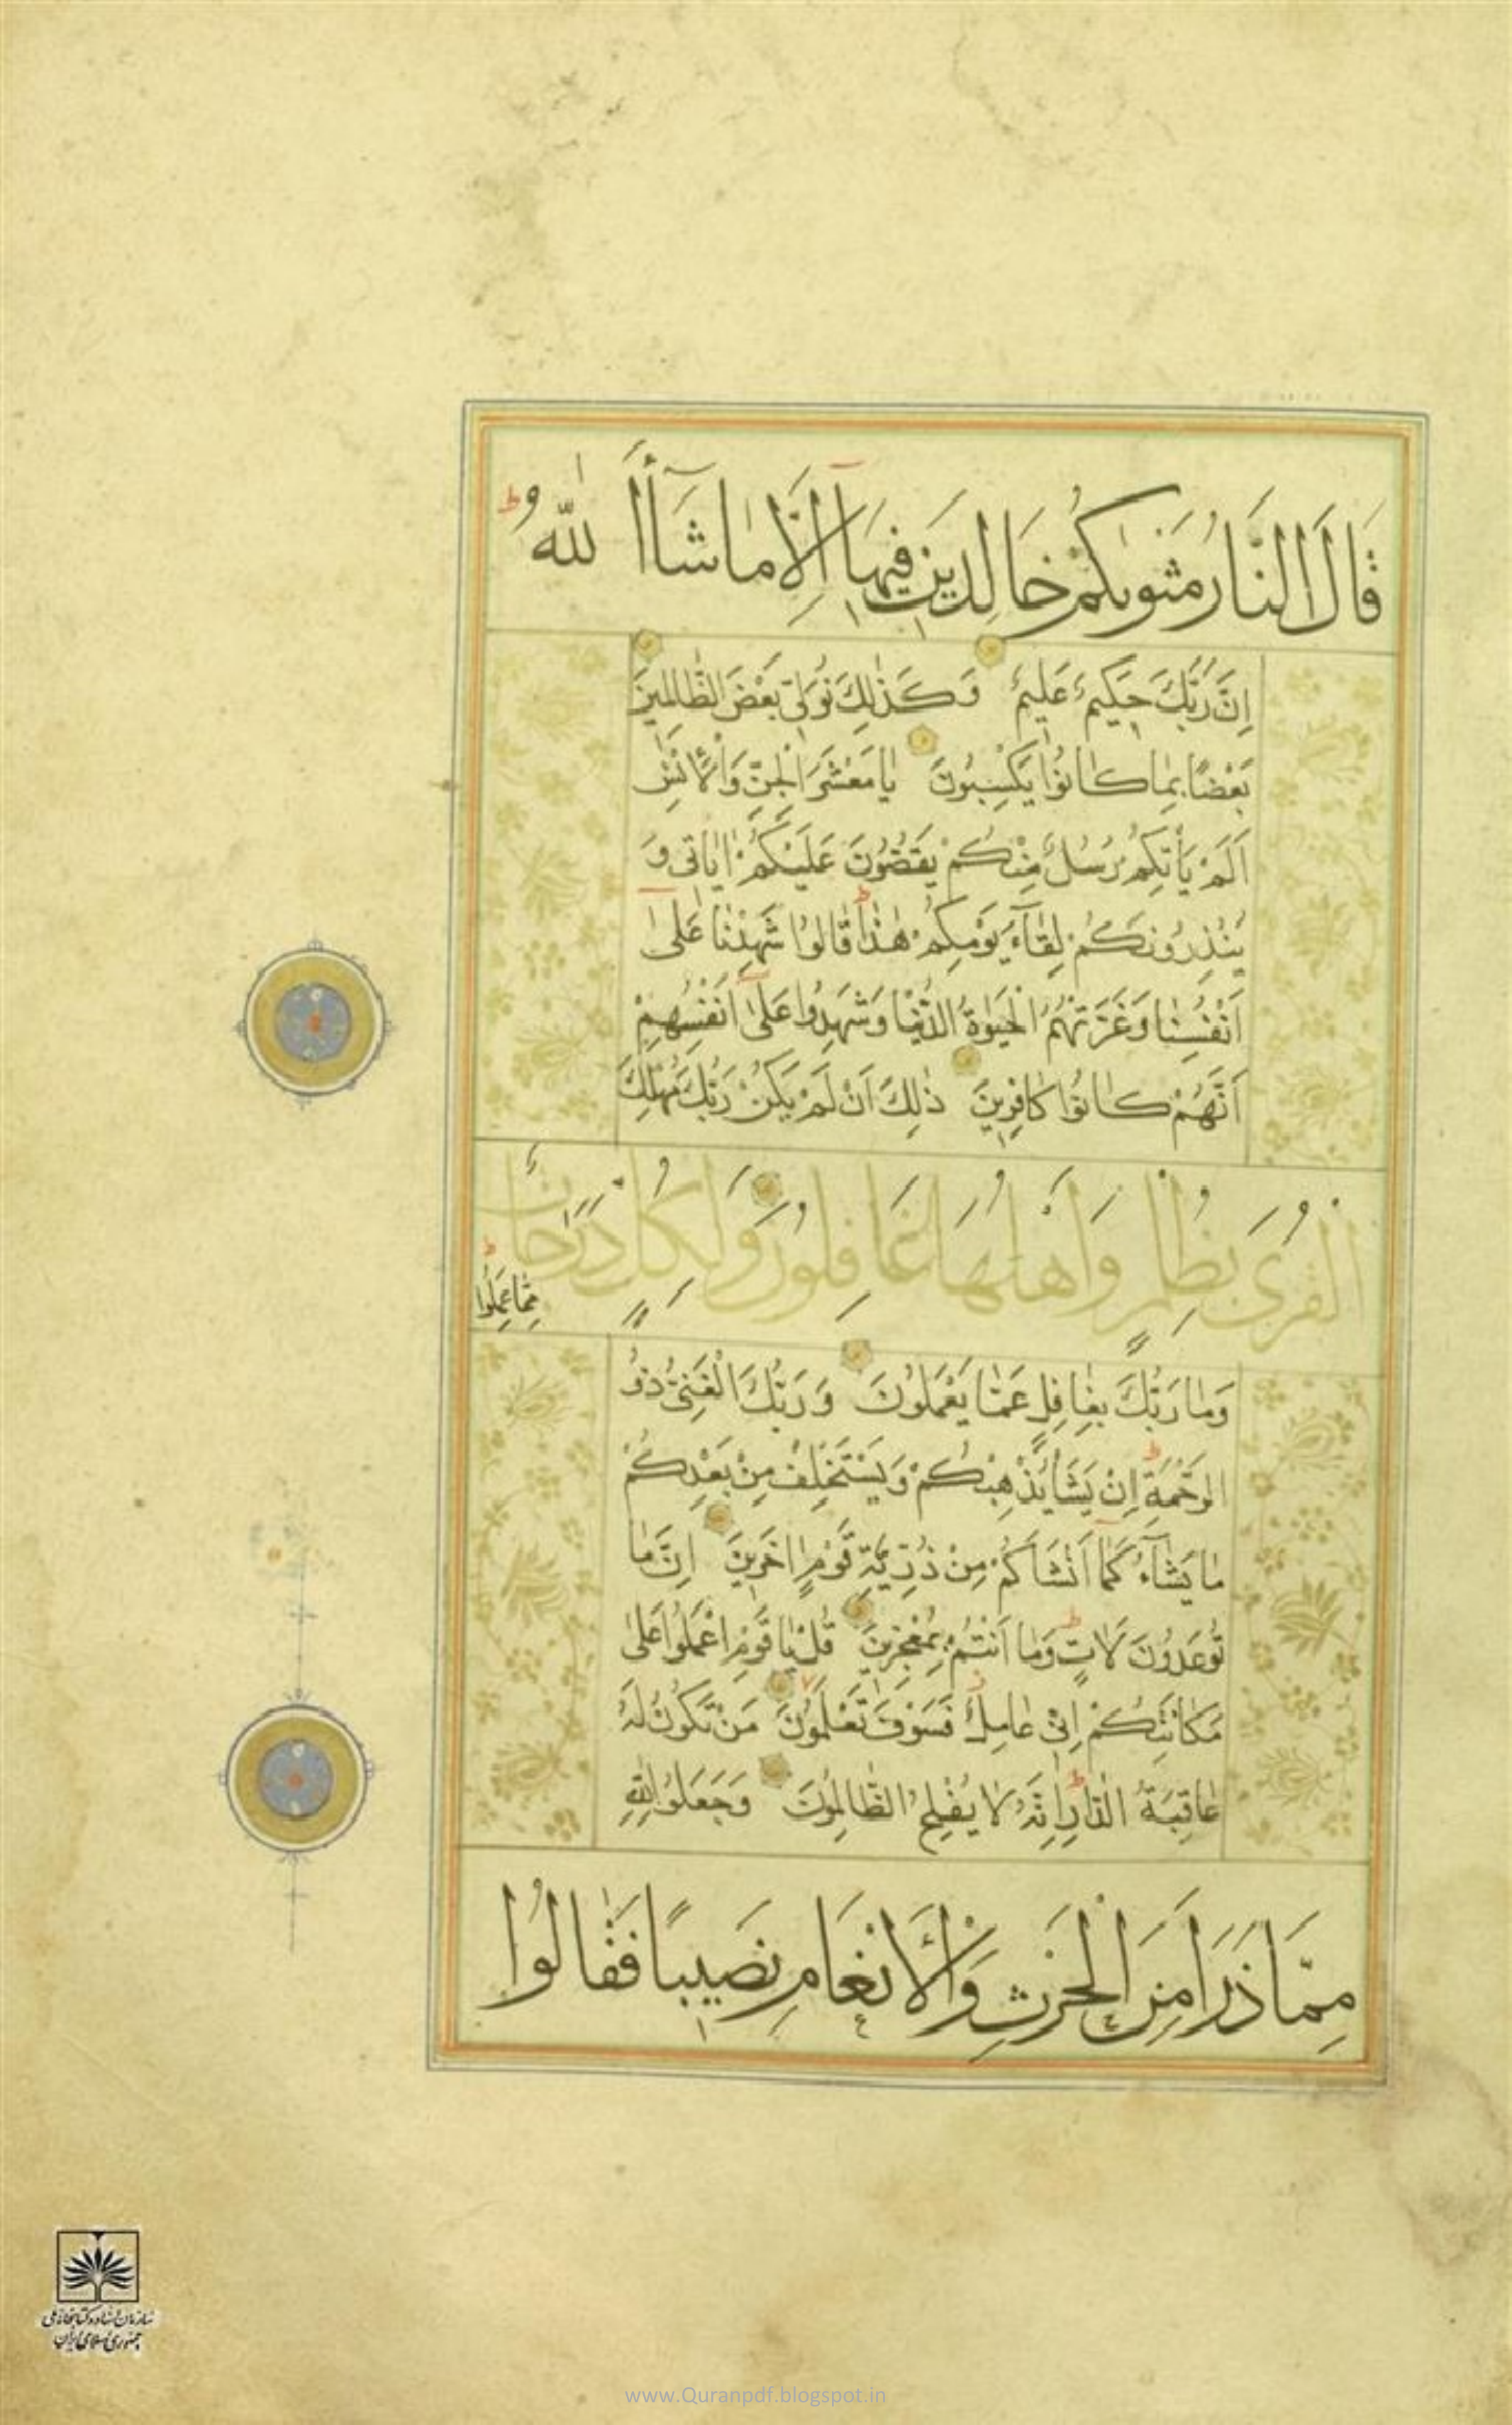 قَالَ النَّارُ مَثْوٰیكُمْ خَالِدِینَ فِیهَآ اِلَّا مَا شَآءَ اللّٰهُ ط
اِنَّ رَبَّكَ حَكِیمٌ عَلِیمٌ وَكَذٰلِكَ نُوَلِّی بَعْضَ الظَّالِمِینَ
بَعْضًا بِمَا كَانُوا یَكْسِبُونَ یَا مَعْشَرَ الْجِنِّ وَالْاِنْسِ
اَلَمْ یَأْتِكُمْ رُسُلٌ مِنْكُمْ یَقُصُّونَ عَلَیْكُمْ اٰیَاتِی وَ
یُنْذِرُونَكُمْ لِقَآءَ یَوْمِكُمْ هٰذَا ط قَالُوا شَهِدْنَا عَلٰٓی
اَنْفُسِنَا وَغَرَّتْهُمُ الْحَیٰوةُ الدُّنْیَا وَشَهِدُوا عَلٰٓی اَنْفُسِهِمْ
اَنَّهُمْ كَانُوا كَافِرِینَ ذٰلِكَ اَنْ لَمْ یَكُنْ رَبُّكَ مُهْلِكَ
الْقُرٰی بِظُلْمٍ وَاَهْلُهَا غَافِلُونَ وَلِكُلٍّ دَرَجَاتٌ
مِمَّا عَمِلُوا ط
وَمَا رَبُّكَ بِغَافِلٍ عَمَّا یَعْمَلُونَ وَرَبُّكَ الْغَنِیُّ ذُو
الرَّحْمَةِ ط اِنْ یَشَأْ یُذْهِبْكُمْ وَیَسْتَخْلِفْ مِنْ بَعْدِكُمْ
مَا یَشَآءُ كَمَآ اَنْشَاَكُمْ مِنْ ذُرِّیَّةِ قَوْمٍ اٰخَرِینَ اِنَّ مَا
تُوعَدُونَ لَاٰتٍ ط وَمَا اَنْتُمْ بِمُعْجِزِینَ قُلْ یَا قَوْمِ اعْمَلُوا عَلٰی
مَكَانَتِكُمْ اِنِّی عَامِلٌ فَسَوْفَ تَعْلَمُونَ مَنْ تَكُونُ لَهُ
عَاقِبَةُ الدَّارِ ط اِنَّهُ لَا یُفْلِحُ الظَّالِمُونَ وَجَعَلُوا لِلّٰهِ
مِمَّا ذَرَاَ مِنَ الْحَرْثِ وَالْاَنْعَامِ نَصِیبًا فَقَالُوا
سازمان اسناد و کتابخانه ملی
جمهوری اسلامی ایران
www.Quranpdf.blogspot.in